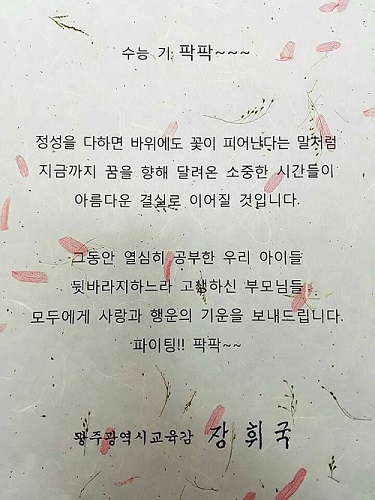 수능 기 팍팍~~~
정성을 다하면 바위에도 꽃이 피어난다는 말처럼
지금까지 꿈을 향해 달려온 소중한 시간들이
아름다운 결실로 이어질 것입니다.
그동안 열심히 공부한 우리 아이들
뒷바라지하느라 고생하신 부모님들
모두에게 사랑과 행운의 기운을 보내드립니다.
파이팅!! 팍팍~~
광주광역시교육감 장휘국